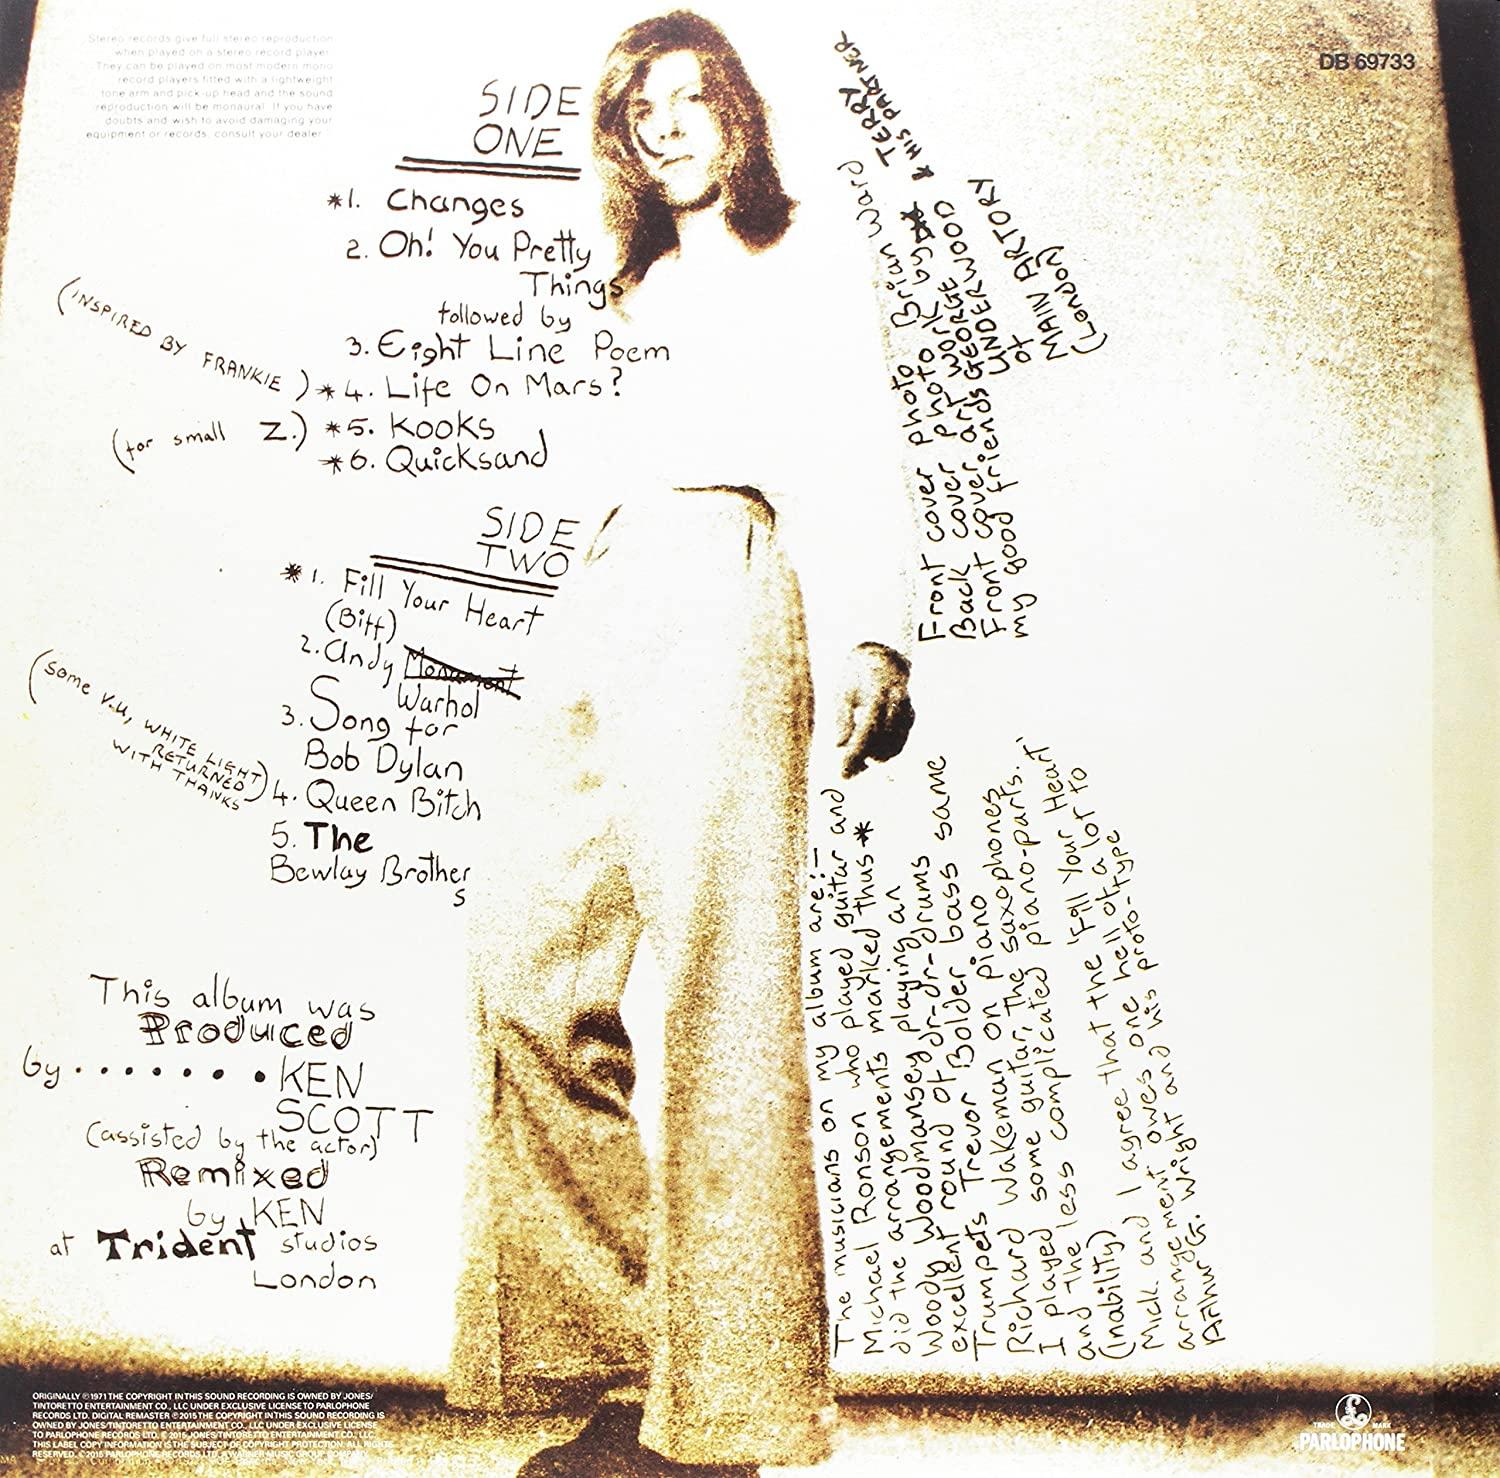 Stereo records give full stereo reproduction
when played on a stereo record player.
They can be played on most modern mono
record players fitted with a lightweight
tone arm and pick-up head and the sound
reproduction will be monaural. If you have
doubts and wish to avoid damaging your
equipment or records, consult your dealer.
DB 69733
SIDE
ONE
*1. Changes
2. Oh! You Pretty
Things
followed by
3. Eight Line Poem
(INSPIRED BY FRANKIE) *4. Life On Mars?
(for small Z.) *5. Kooks
*6. Quicksand
SIDE
TWO
*1. Fill Your Heart
(Biff)
2. Andy Monument
Warhol
3. Song for
Bob Dylan
(some V.U, WHITE LIGHT
RETURNED
WITH THANKS)
4. Queen Bitch
5. The
Bewlay Brother
s
This album was
Produced
by........KEN
SCOTT
(assisted by the actor)
Remixed
by KEN
at Trident studios
London
Front cover photo Brian Ward
Back cover photo work by
Front cover art work GEORGE UNDERWOOD
TERRY
& HIS PARTNER
my good friends
of
MAIN ARTORY
(London)
The musicians on my album are:—
Michael Ronson who played guitar and
did the arrangements marked thus *
Woody Woodmansey playing an
excellent round of dr-dr-drums
Trumpets Trevor Bolder bass same
Richard Wakeman on piano
I played some guitar, the saxophones
and the less complicated piano-parts.
(Inability)
Mick and I agree that the 'Fill Your Heart'
arrangement owes one hell of a lot to
Arthur G. Wright and his proto-type
ORIGINALLY ℗ 1971 THE COPYRIGHT IN THIS SOUND RECORDING IS OWNED BY JONES/
TINTORETTO ENTERTAINMENT CO., LLC UNDER EXCLUSIVE LICENSE TO PARLOPHONE
RECORDS LTD. DIGITAL REMASTER ℗ 2015 THE COPYRIGHT IN THIS SOUND RECORDING IS
OWNED BY JONES/TINTORETTO ENTERTAINMENT CO., LLC UNDER EXCLUSIVE LICENSE
TO PARLOPHONE RECORDS LTD. © 2015 JONES/TINTORETTO ENTERTAINMENT CO., LLC.
THIS LABEL COPY INFORMATION IS THE SUBJECT OF COPYRIGHT PROTECTION. ALL RIGHTS
RESERVED. © 2015 PARLOPHONE RECORDS LTD, A WARNER MUSIC GROUP COMPANY
TRADE MARK
PARLOPHONE